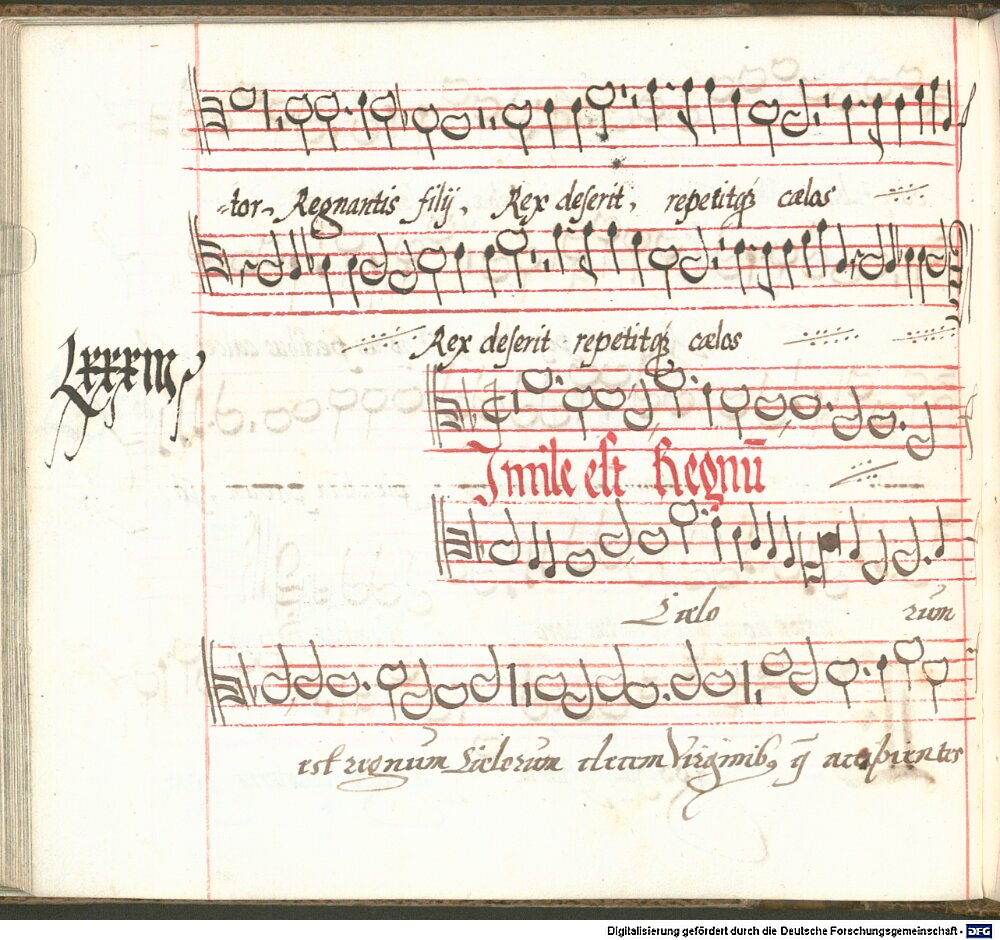 -tor, Regnantis filij, Rex deserit, repetitq́ꝫ cælos
Rex deserit repetitq́ꝫ cælos
LXXXIII
Imile est Regnū
Cælo rum
est regnum Cælorum decem Virginibꝫ q̄ accipientes
Digitalisierung gefördert durch die Deutsche Forschungsgemeinschaft - DFG